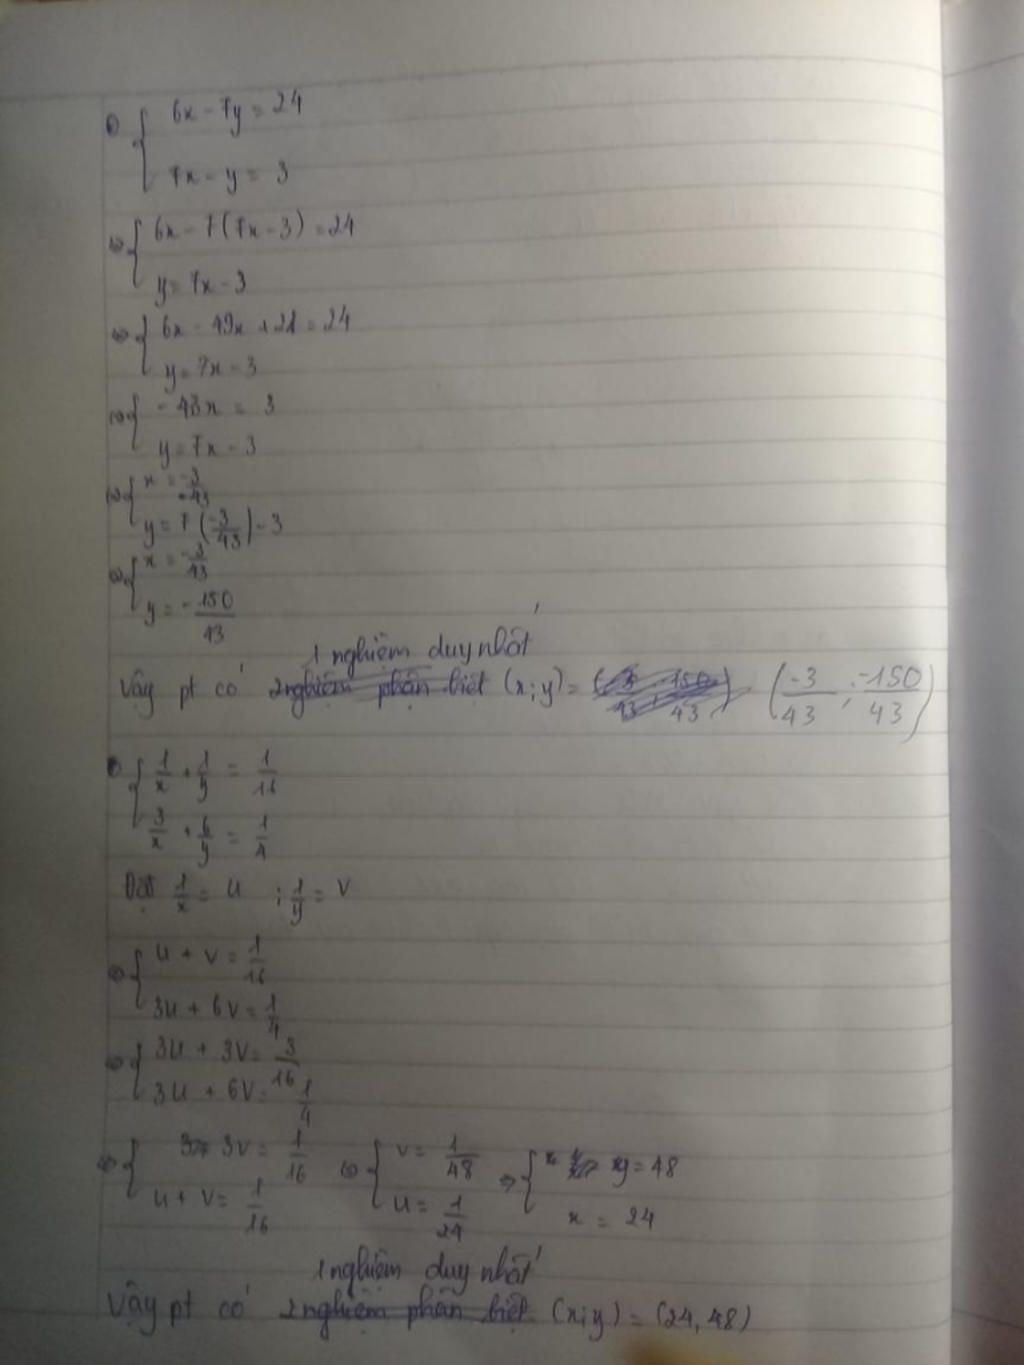 6x - 7y = 24
7x - y = 3
⇔ 6x - 7(7x - 3) = 24
y = 7x - 3
⇔ 6x - 49x + 21 = 24
y = 7x - 3
⇔ -43x = 3
y = 7x - 3
⇔ x = -3/43
y = 7(-3/43) - 3
⇔ x = -3/43
y = -150/43
1 nghiệm duy nhất
Vậy pt có 2 nghiệm phân biệt (x;y) = (-3/43 ; -150/43)
1/x + 1/y = 1/16
3/x + 6/y = 1/4
Đặt 1/x = u ; 1/y = v
⇔ u + v = 1/16
3u + 6v = 1/4
⇔ 3u + 3v = 3/16
3u + 6v = 1/4
⇔ 3v = 1/16 ⇔ v = 1/48 ⇒ y = 48
u + v = 1/16 u = 1/24 x = 24
1 nghiệm duy nhất
Vậy pt có 2 nghiệm phân biệt (x;y) = (24, 48)